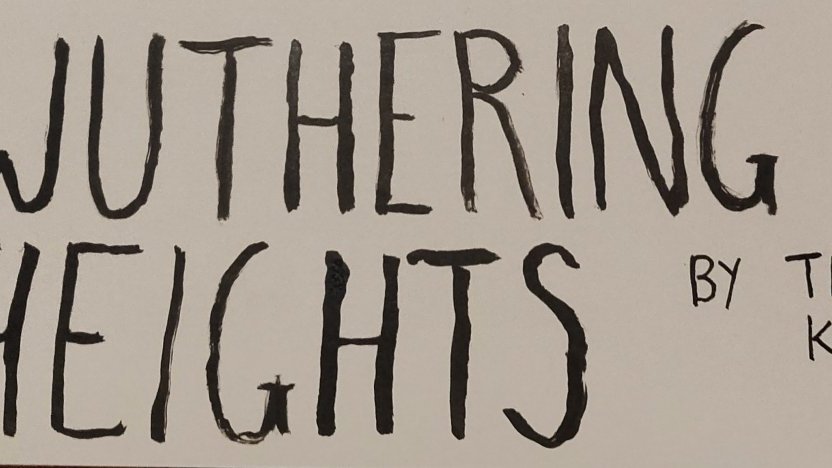 WUTHERING
HEIGHTS
BY